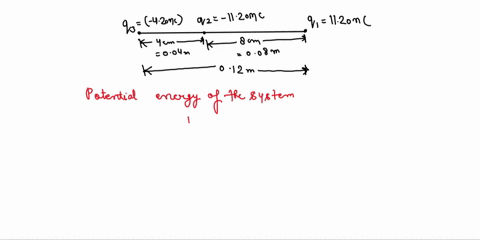 q₀=(-4.20nC) q₂=-11.20nC q₁=11.20nC
4cm 8cm
=0.04m =0.08m
0.12m
Potential energy of the system